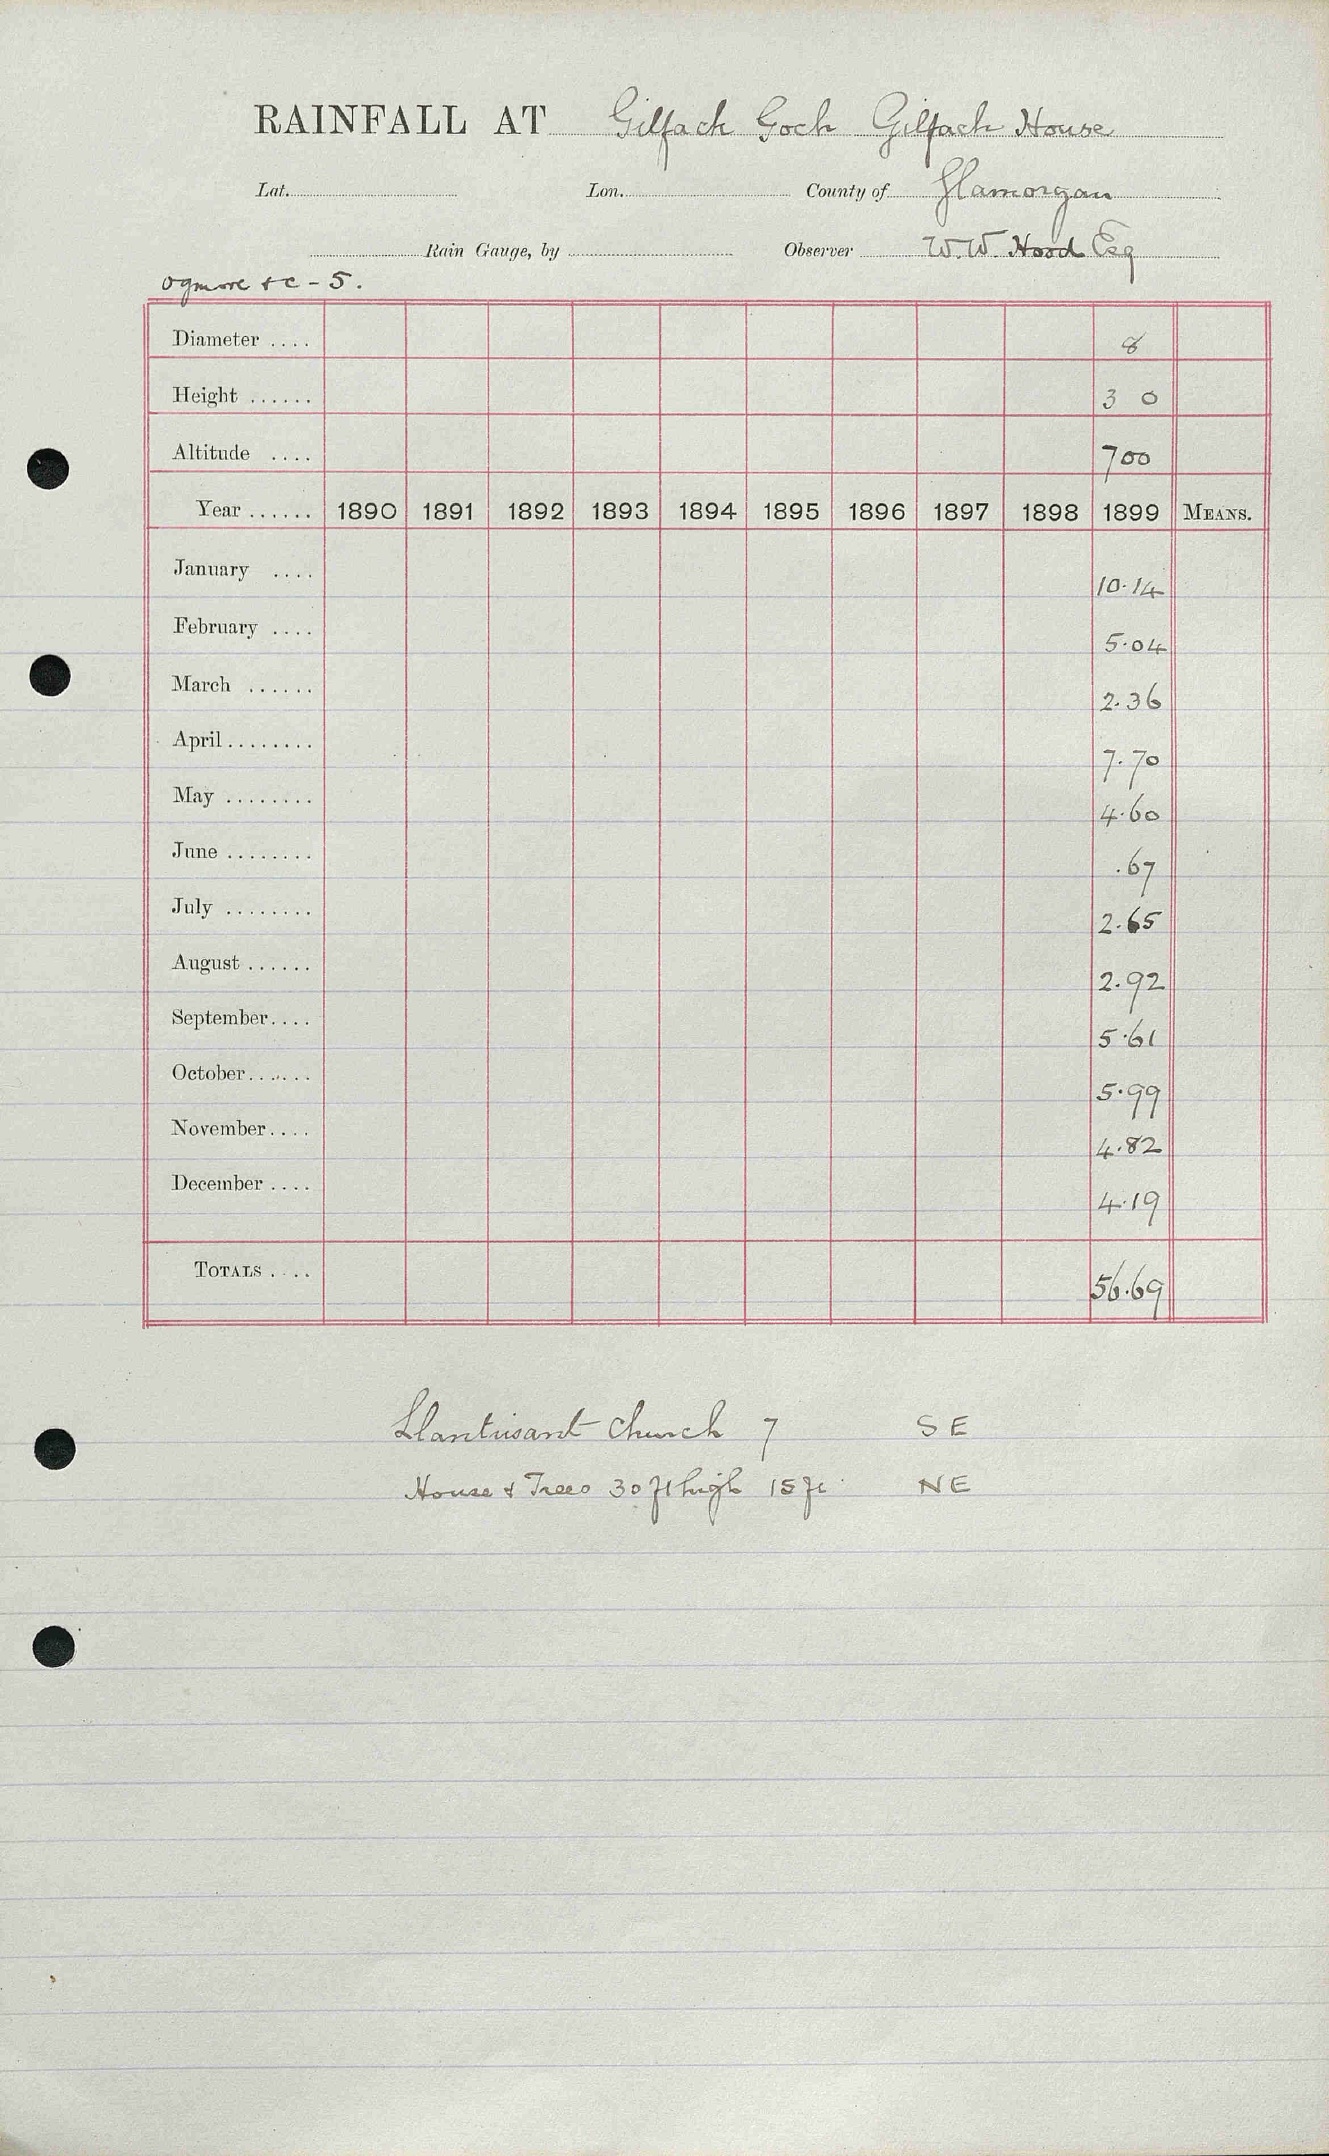 RAINFALL AT Gilfach Goch Gilfach House
Lat. Lon. County of Glamorgan
Rain Gauge, by Observer W. W. Hood Esq
Ogmore &c - 5.
Diameter .... 8
Height ...... 3 0
Altitude .... 700
Year ...... 1890 1891 1892 1893 1894 1895 1896 1897 1898 1899 MEANS.
January .... 10.14
February .... 5.04
March ...... 2.36
April ........ 7.70
May ........ 4.60
June ........ .67
July ........ 2.65
August ...... 2.92
September.... 5.61
October...... 5.99
November.... 4.82
December .... 4.19
TOTALS .... 56.69
Llantrisant Church 7 SE
House & Trees 30 ft high 15 ft NE